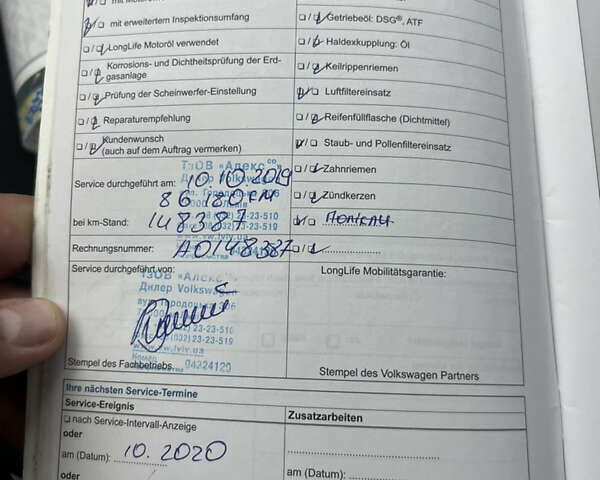 mit erweitertem Inspektionsumfang
LongLife Motoröl verwendet
Korrosions- und Dichtheitsprüfung der Erd-
gasanlage
Prüfung der Scheinwerfer-Einstellung
Reparaturempfehlung
Kundenwunsch
(auch auf dem Auftrag vermerken)
Getriebeöl: DSG®, ATF
Haldexkupplung: Öl
Keilrippenriemen
Luftfiltereinsatz
Reifenfüllflasche (Dichtmittel)
Staub- und Pollenfiltereinsatz
Zahnriemen
Zündkerzen
ТзОВ «Алекс
Дилер Volkswagen
Service durchgeführt am: 10.10.2019
86180 км
bei km-Stand: 148387
23-23-510
Rechnungsnummer: A0148387
Service durchgeführt von:
ТЗОВ «Алекс
Дилер Volkswagen
(032) 23-23-510
(032) 23-23-519
04324120
Stempel des Fachbetriebs
LongLife Mobilitätsgarantie:
Stempel des Volkswagen Partners
Ihre nächsten Service-Termine
Service-Ereignis
nach Service-Intervall-Anzeige
oder
am (Datum): 10. 2020
oder
Zusatzarbeiten
am (Datum):